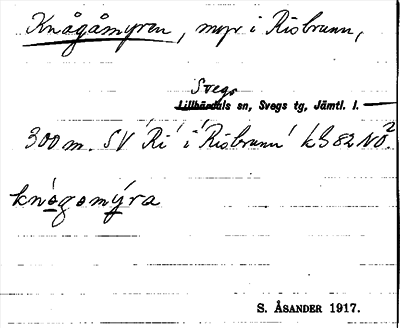 Knågåmyren, myr i Risbrunn,
Svegs
Lillhärdals sn, Svegs tg, Jämtl. l.
300 m. SV 'Ri' i 'Risbrunn' kb 82 NO².
knògomýra
S. ÅSANDER 1917.